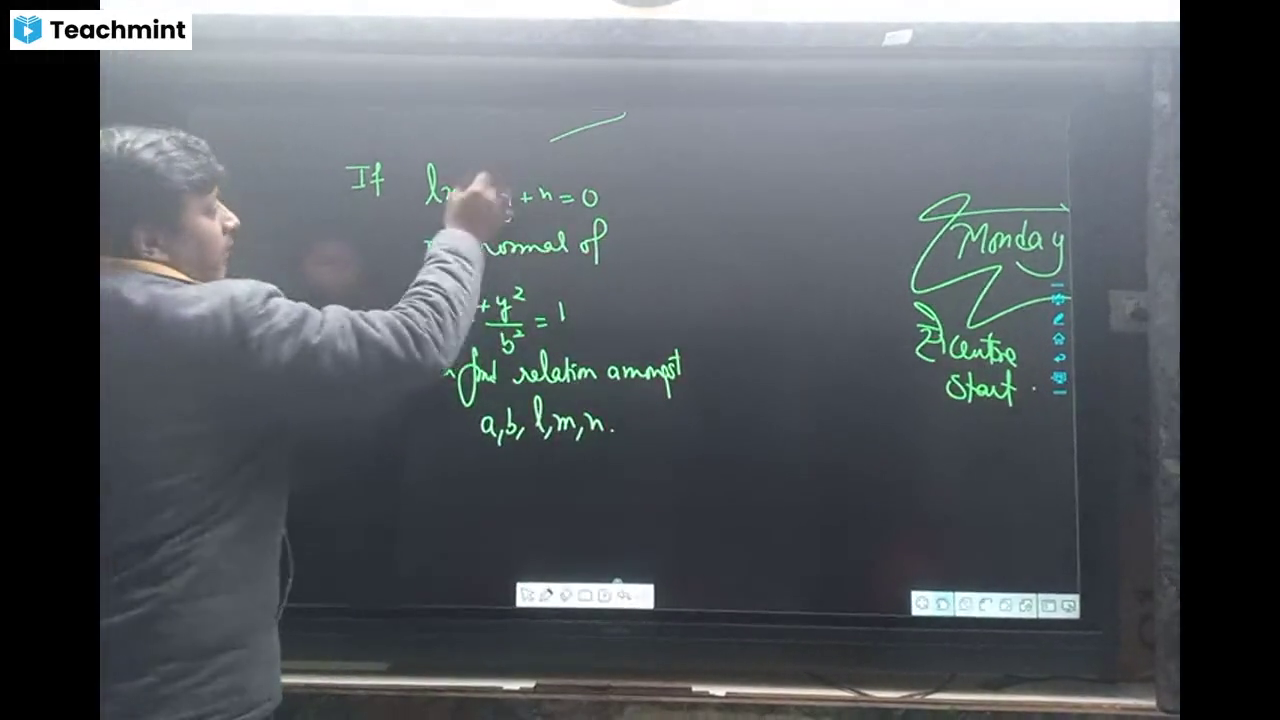 Teachmint
If + n = 0
normal of
+ y² / b² = 1
find relation amongst
a, b, l, m, n.
Monday
centre
start